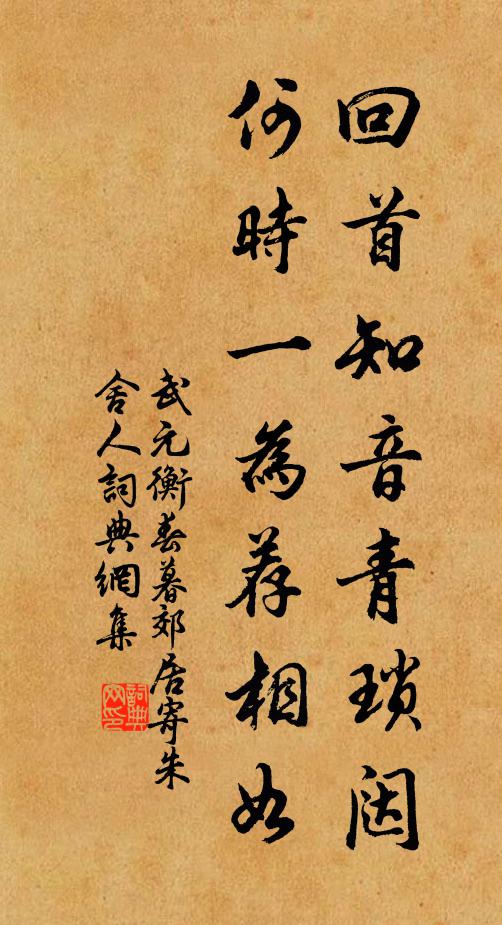 回首知音青瑣闼
何時一為荐相如
武元衡春暮郊居寄朱
舍人詞典網集
詞典
网印